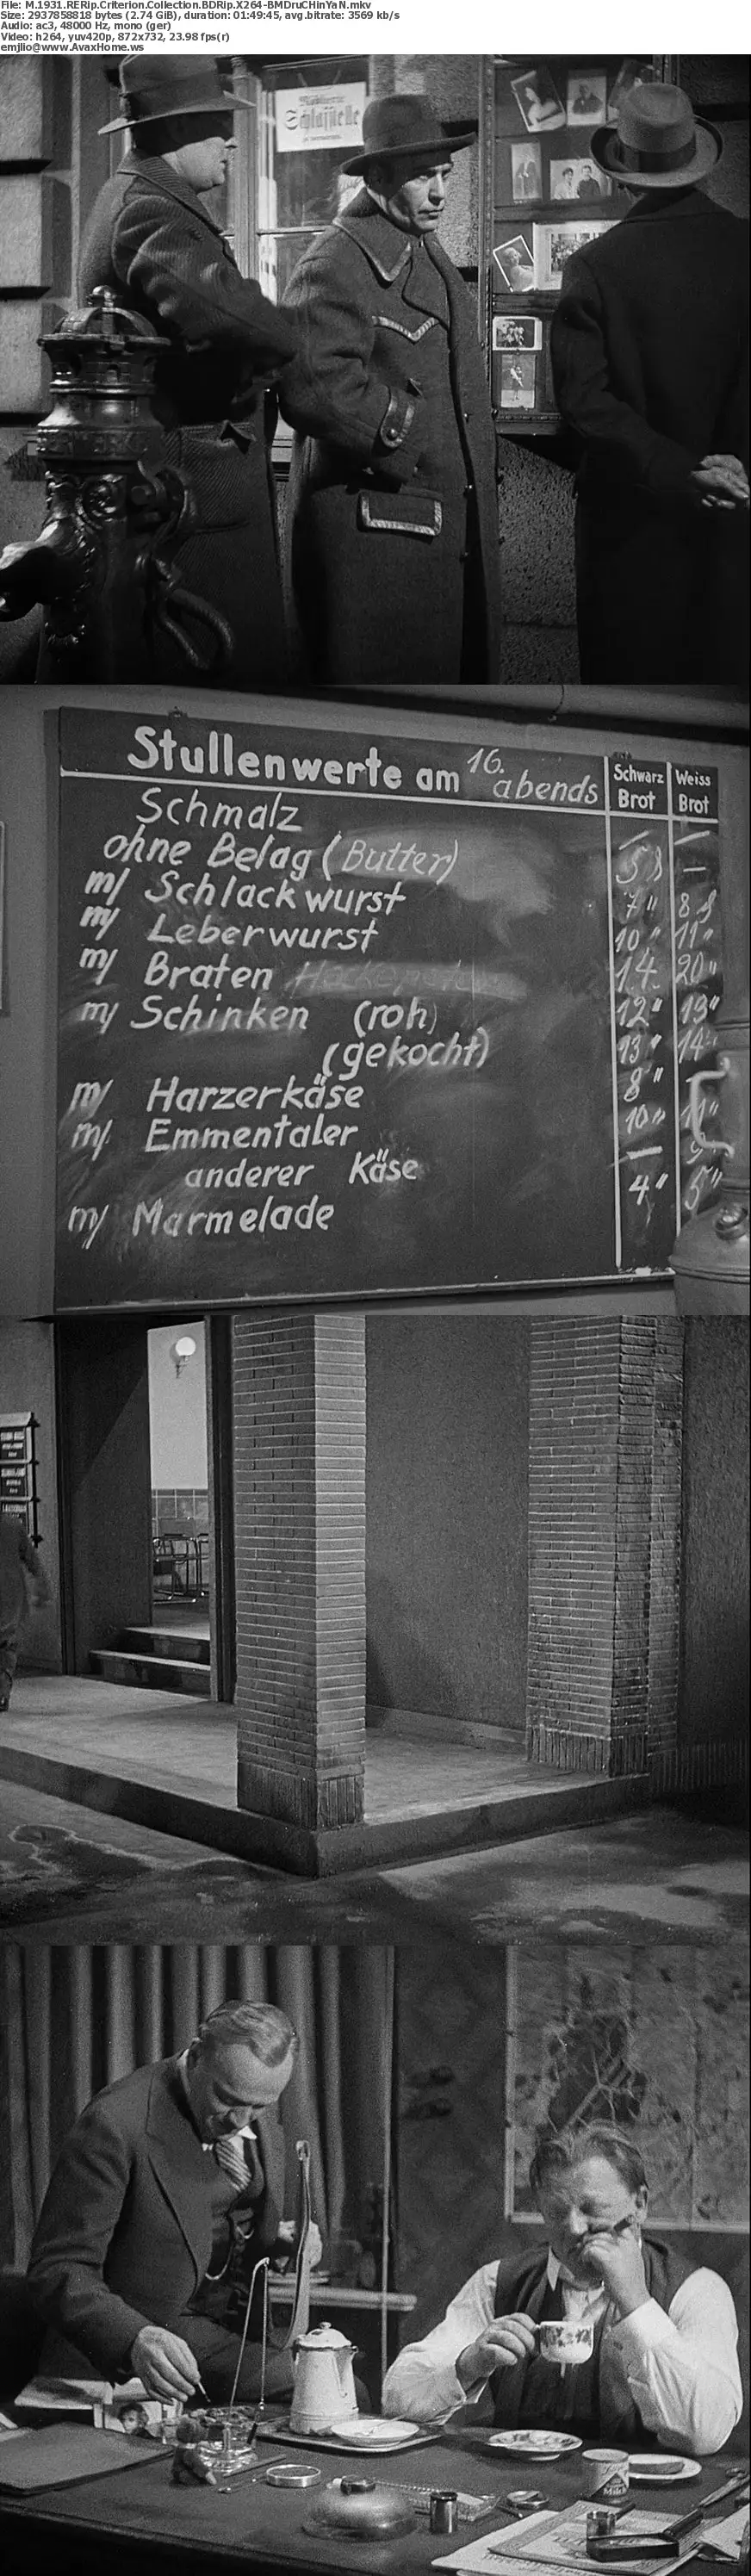 File: M.1931.RERip.Criterion.Collection.BDRip.X264-BMDruCHinYaN.mkv
Size: 2937858818 bytes (2.74 GiB), duration: 01:49:45, avg.bitrate: 3569 kb/s
Audio: ac3, 48000 Hz, mono (ger)
Video: h264, yuv420p, 872x732, 23.98 fps(r)
emjlio@www.AvaxHome.ws
Schlafstelle
Stullenwerte am 16. abends Schwarz Brot Weiss Brot
Schmalz — —
ohne Belag (Butter) 5 —
m/ Schlackwurst 7 " 8
m/ Leberwurst 10 " 11 "
m/ Braten 14. 20 "
m/ Schinken (roh) 12 "
(gekocht) 13 " 14 "
m/ Harzerkäse 8 "
m/ Emmentaler 10 "
anderer Käse —
m/ Marmelade 4 " 5 "
Milch